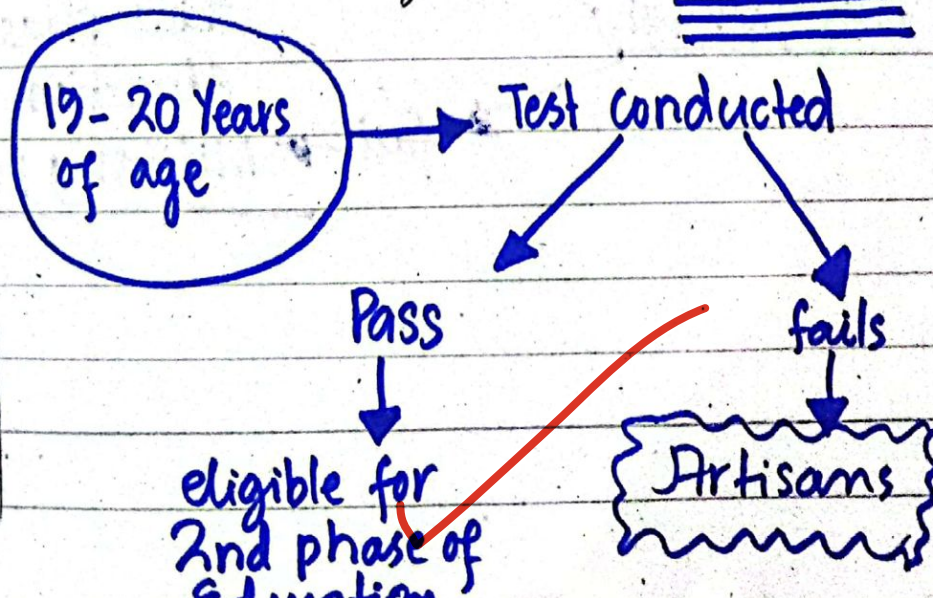 19-20 Years
of age
Test conducted
Pass
fails
eligible for
2nd phase of
Education
Artisans